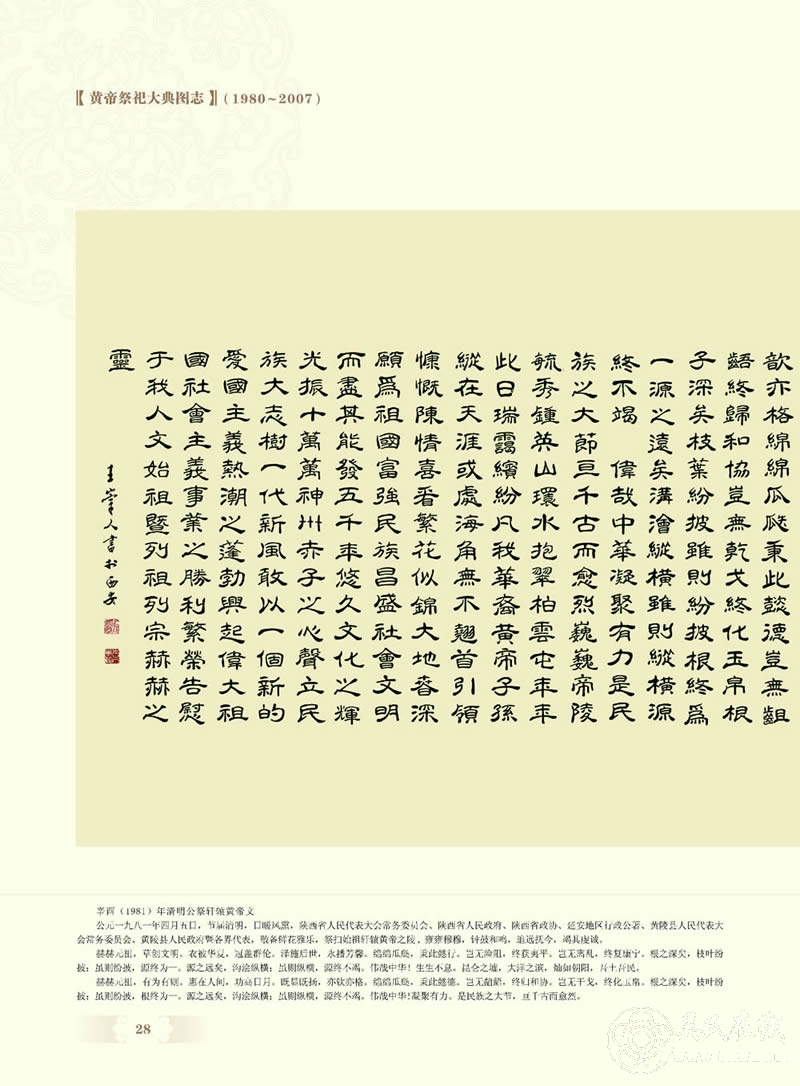 【黄帝祭祀大典图志】(1980~2007)
歆亦格綿綿瓜瓞秉此懿德豈無齟
齬終歸和協豈無乾戈終化玉帛根
子深矣枝葉紛披雖則紛披根終爲
一源之遠矣溝澮縱橫雖則縱橫源
終不竭 偉哉中華凝聚有力是民
族之大節亘千古而愈烈巍巍帝陵
毓秀鍾英山環水抱翠柏雲屯年年
此日瑞靄繽紛凡我華裔黄帝子孫
縱在天涯或處海角無不翹首引領
慷慨陳情喜看繁花似錦大地春深
願爲祖國富強民族昌盛社會文明
而盡其能發五千年悠久文化之輝
光振十萬萬神州赤子之心聲立民
族大志樹一代新風敢以一個新的
愛國主義熱潮之蓬勃興起偉大祖
國社會主義事業之勝利繁榮告慰
于我人文始祖暨列祖列宗赫赫之
靈
王人書於西安
辛酉（1981）年清明公祭轩辕黄帝文
公元一九八一年四月五日，节届清明，日暖风熏，陕西省人民代表大会常务委员会、陕西省人民政府、陕西省政协、延安地区行政公署、黄陵县人民代表大
会常务委员会、黄陵县人民政府暨各界代表，敬备鲜花雅乐，祭扫始祖轩辕黄帝之陵，雍雍穆穆，钟鼓和鸣，追远抚今，竭其虔诚。
赫赫元祖，草创文明。衣被华夏，冠盖群伦。泽施后世，永播芳馨。绵绵瓜瓞，秉此懿行。岂无险阻，终获夷平。岂无离乱，终复康宁。根之深矣，枝叶纷
披；虽则纷披，源终为一。源之远矣，沟浍纵横；虽则纵横，源终不竭。伟哉中华！生生不息。昆仑之墟，大洋之滨，灿如朝阳，吾土吾民。
赫赫元祖，有为有则。惠在人间，功高日月。既显既扬，亦钦亦格。绵绵瓜瓞，秉此懿德。岂无龃龉，终归和协。岂无干戈，终化玉帛。根之深矣，枝叶纷
披；虽则纷披，根终为一。源之远矣，沟浍纵横；虽则纵横，源终不竭。伟哉中华！凝聚有力。是民族之大节，亘千古而愈烈。
28